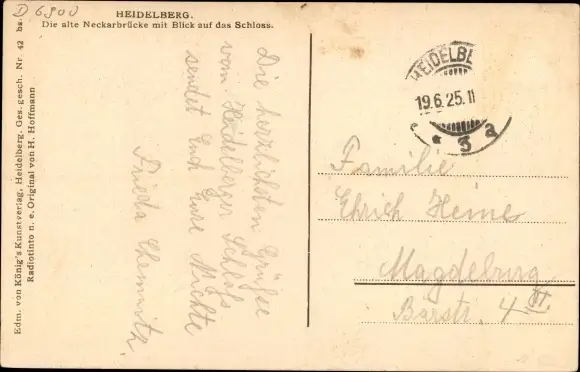 D 6900
HEIDELBERG.
Die alte Neckarbrücke mit Blick auf das Schloss.
Edm. von König's Kunstverlag, Heidelberg. Ges. gesch. Nr. 42 ba.
Radiotinto n. e. Original von H. Hoffmann
Die herzlichsten Grüße
vom Heidelberger Schloß
sendet Euch Eure Nichte
Frieda Chemnitz.
HEIDELBE
19.6.25.11
* 3 a
Familie
Ehrich Heine
Magdeburg
Bärstr. 4 VI.